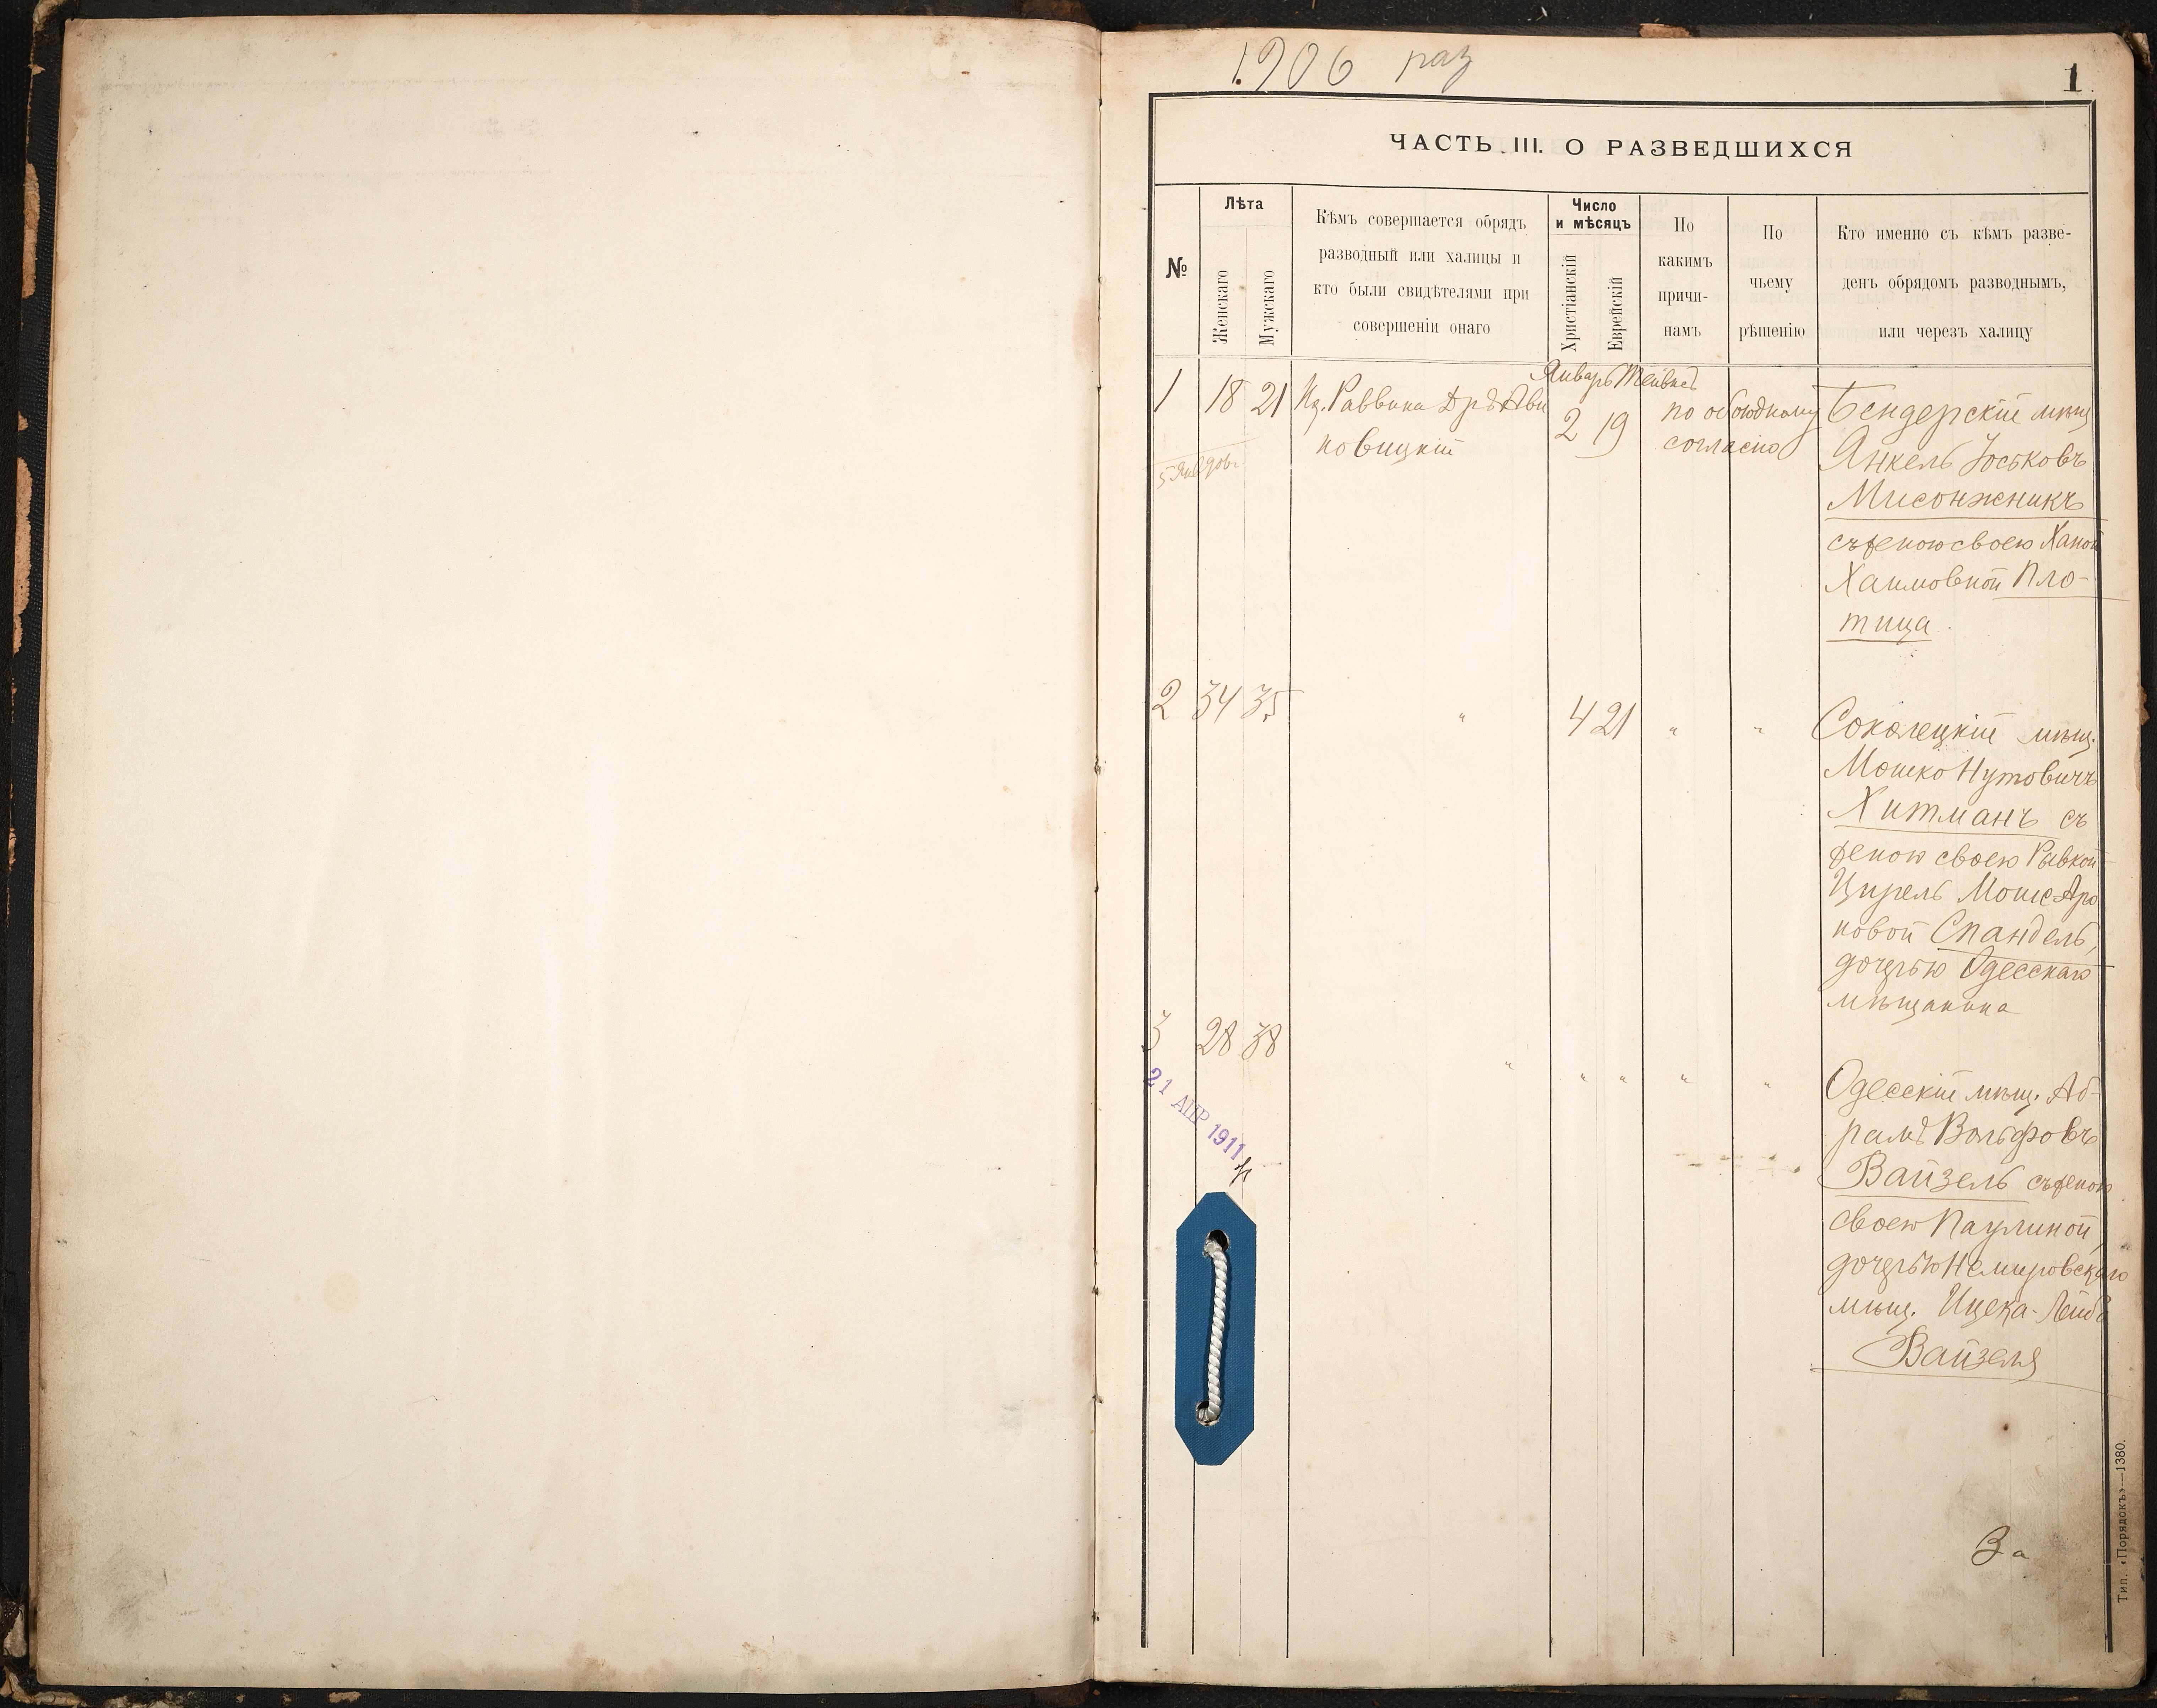 1906 раз
1
ЧАСТЬ III. О РАЗВЕДШИХСЯ
№
Лѣта
Женскаго
Мужскаго
Кѣмъ совершается обрядъ
разводный или халицы и
кто были свидѣтелями при
совершеніи онаго
Число
и мѣсяцъ
Христіанскій
Еврейскій
По
какимъ
причи-
намъ
По
чьему
рѣшенію
Кто именно съ кѣмъ разве-
денъ обрядомъ разводнымъ,
или черезъ халицу
Январь Тейвесъ
1 18 21 Раввина Дръ Ави
новицкій
2 19
по обоюдному
согласію
Бендерскій мѣщ
Янкель Іоськовъ
Мисонжникъ
съ женою своею Ханой
Хаимовной Пло-
тица.
2 34 35 " 4 21 " "
Соколецкій мѣщ.
Мошко Нутовичъ
Хитманъ съ
женою своею Рывкой
Цирель Моше-Аро
новой Спандель,
дочерью Одесскаго
мѣщанина
3 28 38 " " " " "
21 АПР 1911
Одесскій мѣщ. Аб-
рамъ Вольфовъ
Вайзель съ женою
своею Паулиной,
дочерью Немировскаго
мѣщ. Ицека-Лейба
Вайзеля
За
Тип. «Порядокъ»—1380.